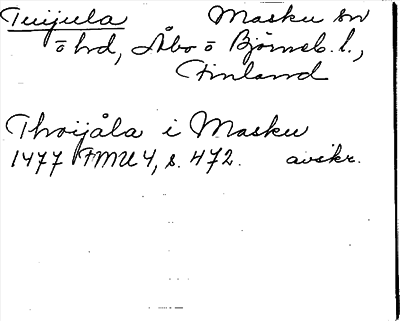 Tuijula Masku sn
o hd, Åbo o Björneb. l.,
Finland
Thoijåla i Masku
1477 FMU 4, s. 472. avskr.